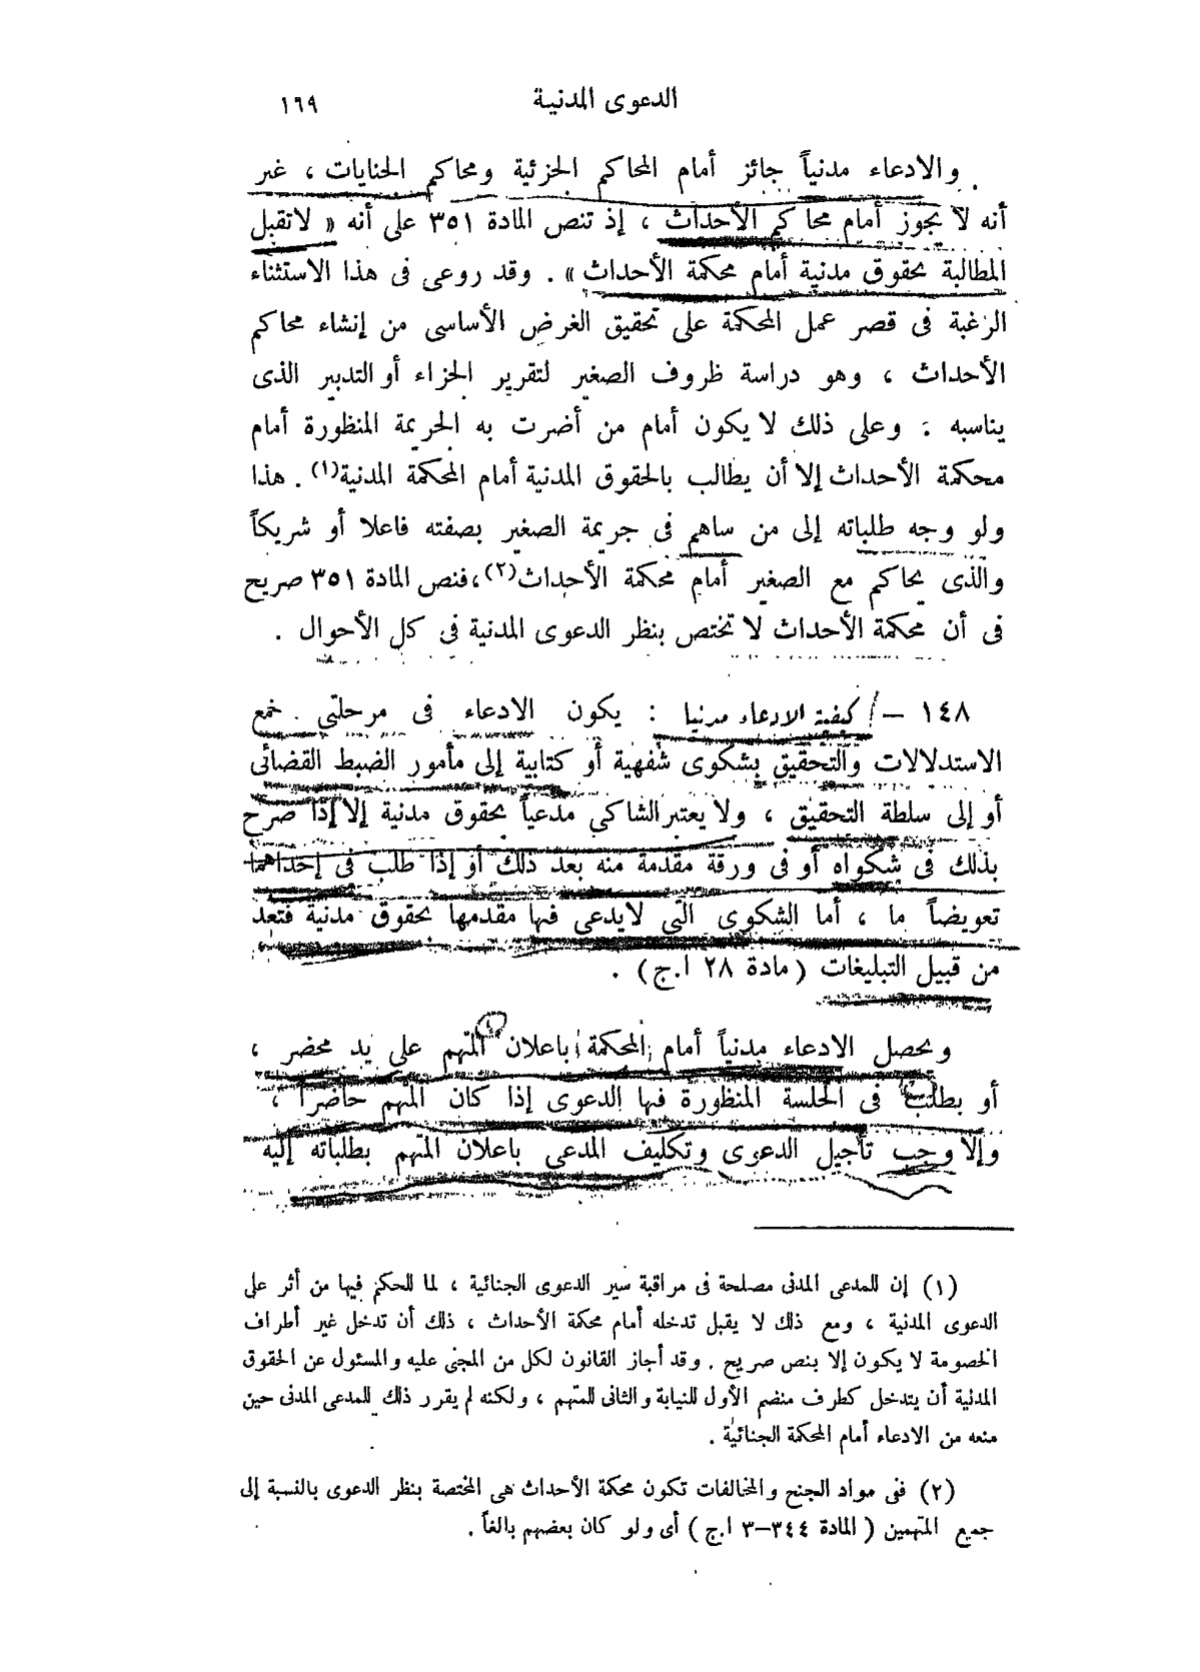 الدعوى المدنية ١٦٩
والادعاء مدنياً جائز أمام المحاكم الجزئية ومحاكم الجنايات ، غير
أنه لا يجوز أمام محاكم الأحداث ، إذ تنص المادة ٣٥١ على أنه « لاتقبل
المطالبة بحقوق مدنية أمام محكمة الأحداث » . وقد روعى فى هذا الاستثناء
الرغبة فى قصر عمل المحكمة على تحقيق الغرض الأساسى من إنشاء محاكم
الأحداث ، وهو دراسة ظروف الصغير لتقرير الجزاء أو التدبير الذى
يناسبه . وعلى ذلك لا يكون أمام من أضرت به الجريمة المنظورة أمام
محكمة الأحداث إلا أن يطالب بالحقوق المدنية أمام المحكمة المدنية(١) . هذا
ولو وجه طلباته إلى من ساهم فى جريمة الصغير بصفته فاعلا أو شريكاً
والذى يحاكم مع الصغير أمام محكمة الأحداث(٢)، فنص المادة ٣٥١ صريح
فى أن محكمة الأحداث لا تختص بنظر الدعوى المدنية فى كل الأحوال .
١٤٨ – كيفية الادعاء مدنيا : يكون الادعاء فى مرحلتى جمع
الاستدلالات والتحقيق بشكوى شفهية أو كتابية إلى مأمور الضبط القضائى
أو إلى سلطة التحقيق ، ولا يعتبر الشاكى مدعياً بحقوق مدنية إلا إذا صرح
بذلك فى شكواه أو فى ورقة مقدمة منه بعد ذلك أو إذا طلب فى إحداهما
تعويضاً ما ، أما الشكوى التى لايدعى فيها مقدمها بحقوق مدنية فتعد
من قبيل التبليغات ( مادة ٢٨ ا.ج ) .
ويحصل الادعاء مدنياً أمام المحكمة باعلان المتهم على يد محضر ،
أو بطلب فى الجلسة المنظورة فيها الدعوى إذا كان المتهم حاضراً ،
وإلا وجب تأجيل الدعوى وتكليف المدعى باعلان المتهم بطلباته إليه
(١) إن للمدعى المدنى مصلحة فى مراقبة سير الدعوى الجنائية ، لما للحكم فيها من أثر على
الدعوى المدنية ، ومع ذلك لا يقبل تدخله أمام محكمة الأحداث ، ذلك أن تدخل غير أطراف
الخصومة لا يكون إلا بنص صريح . وقد أجاز القانون لكل من المجنى عليه والمسئول عن الحقوق
المدنية أن يتدخل كطرف منضم الأول للنيابة والثانى للمتهم ، ولكنه لم يقرر ذلك للمدعى المدنى حين
منعه من الادعاء أمام المحكمة الجنائية .
(٢) فى مواد الجنح والمخالفات تكون محكمة الأحداث هى المختصة بنظر الدعوى بالنسبة إلى
جميع المتهمين ( المادة ٣٤٤–٣ ا.ج ) أى ولو كان بعضهم بالغاً .